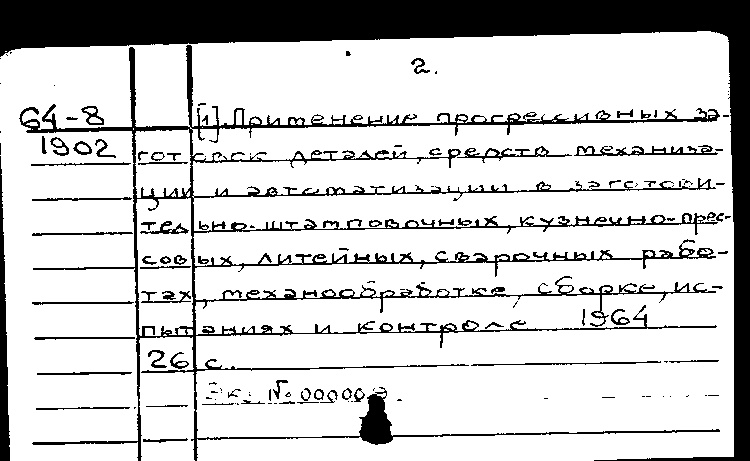 2.
64-8 [1]. Применение прогрессивных за-
1902 готовок деталей, средств механиза-
ции и автоматизации в заготови-
тельно-штамповочных, кузнечно-прес-
совых, литейных, сварочных рабо-
тах, механообработке, сборке, ис-
пытаниях и контроле 1964
26 с.
Эк. №